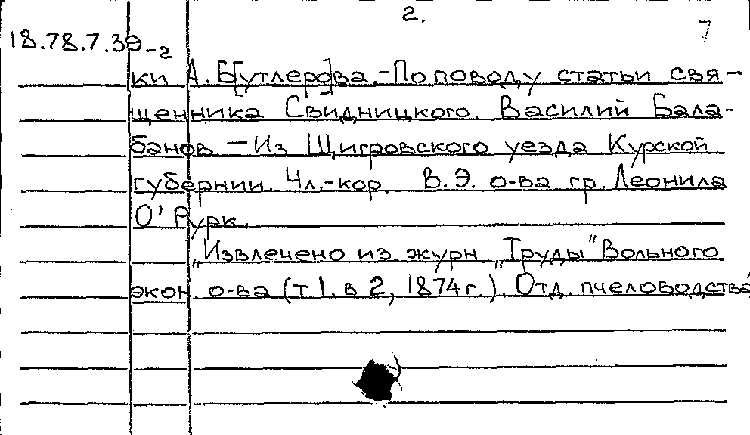 2.
7
18.78.7.39-2
ки А. Б[утлеро]ва.-По поводу статьи свя-
щенника Свидницкого. Василий Бала-
банов. - Из Щигровского уезда Курской
губернии. Чл.-кор. В.Э. о-ва гр. Леонила
О' Рурк.
„Извлечено из журн. „Труды" Вольного
экон. о-ва (т 1. в 2, 1874 г.). Отд. пчеловодства